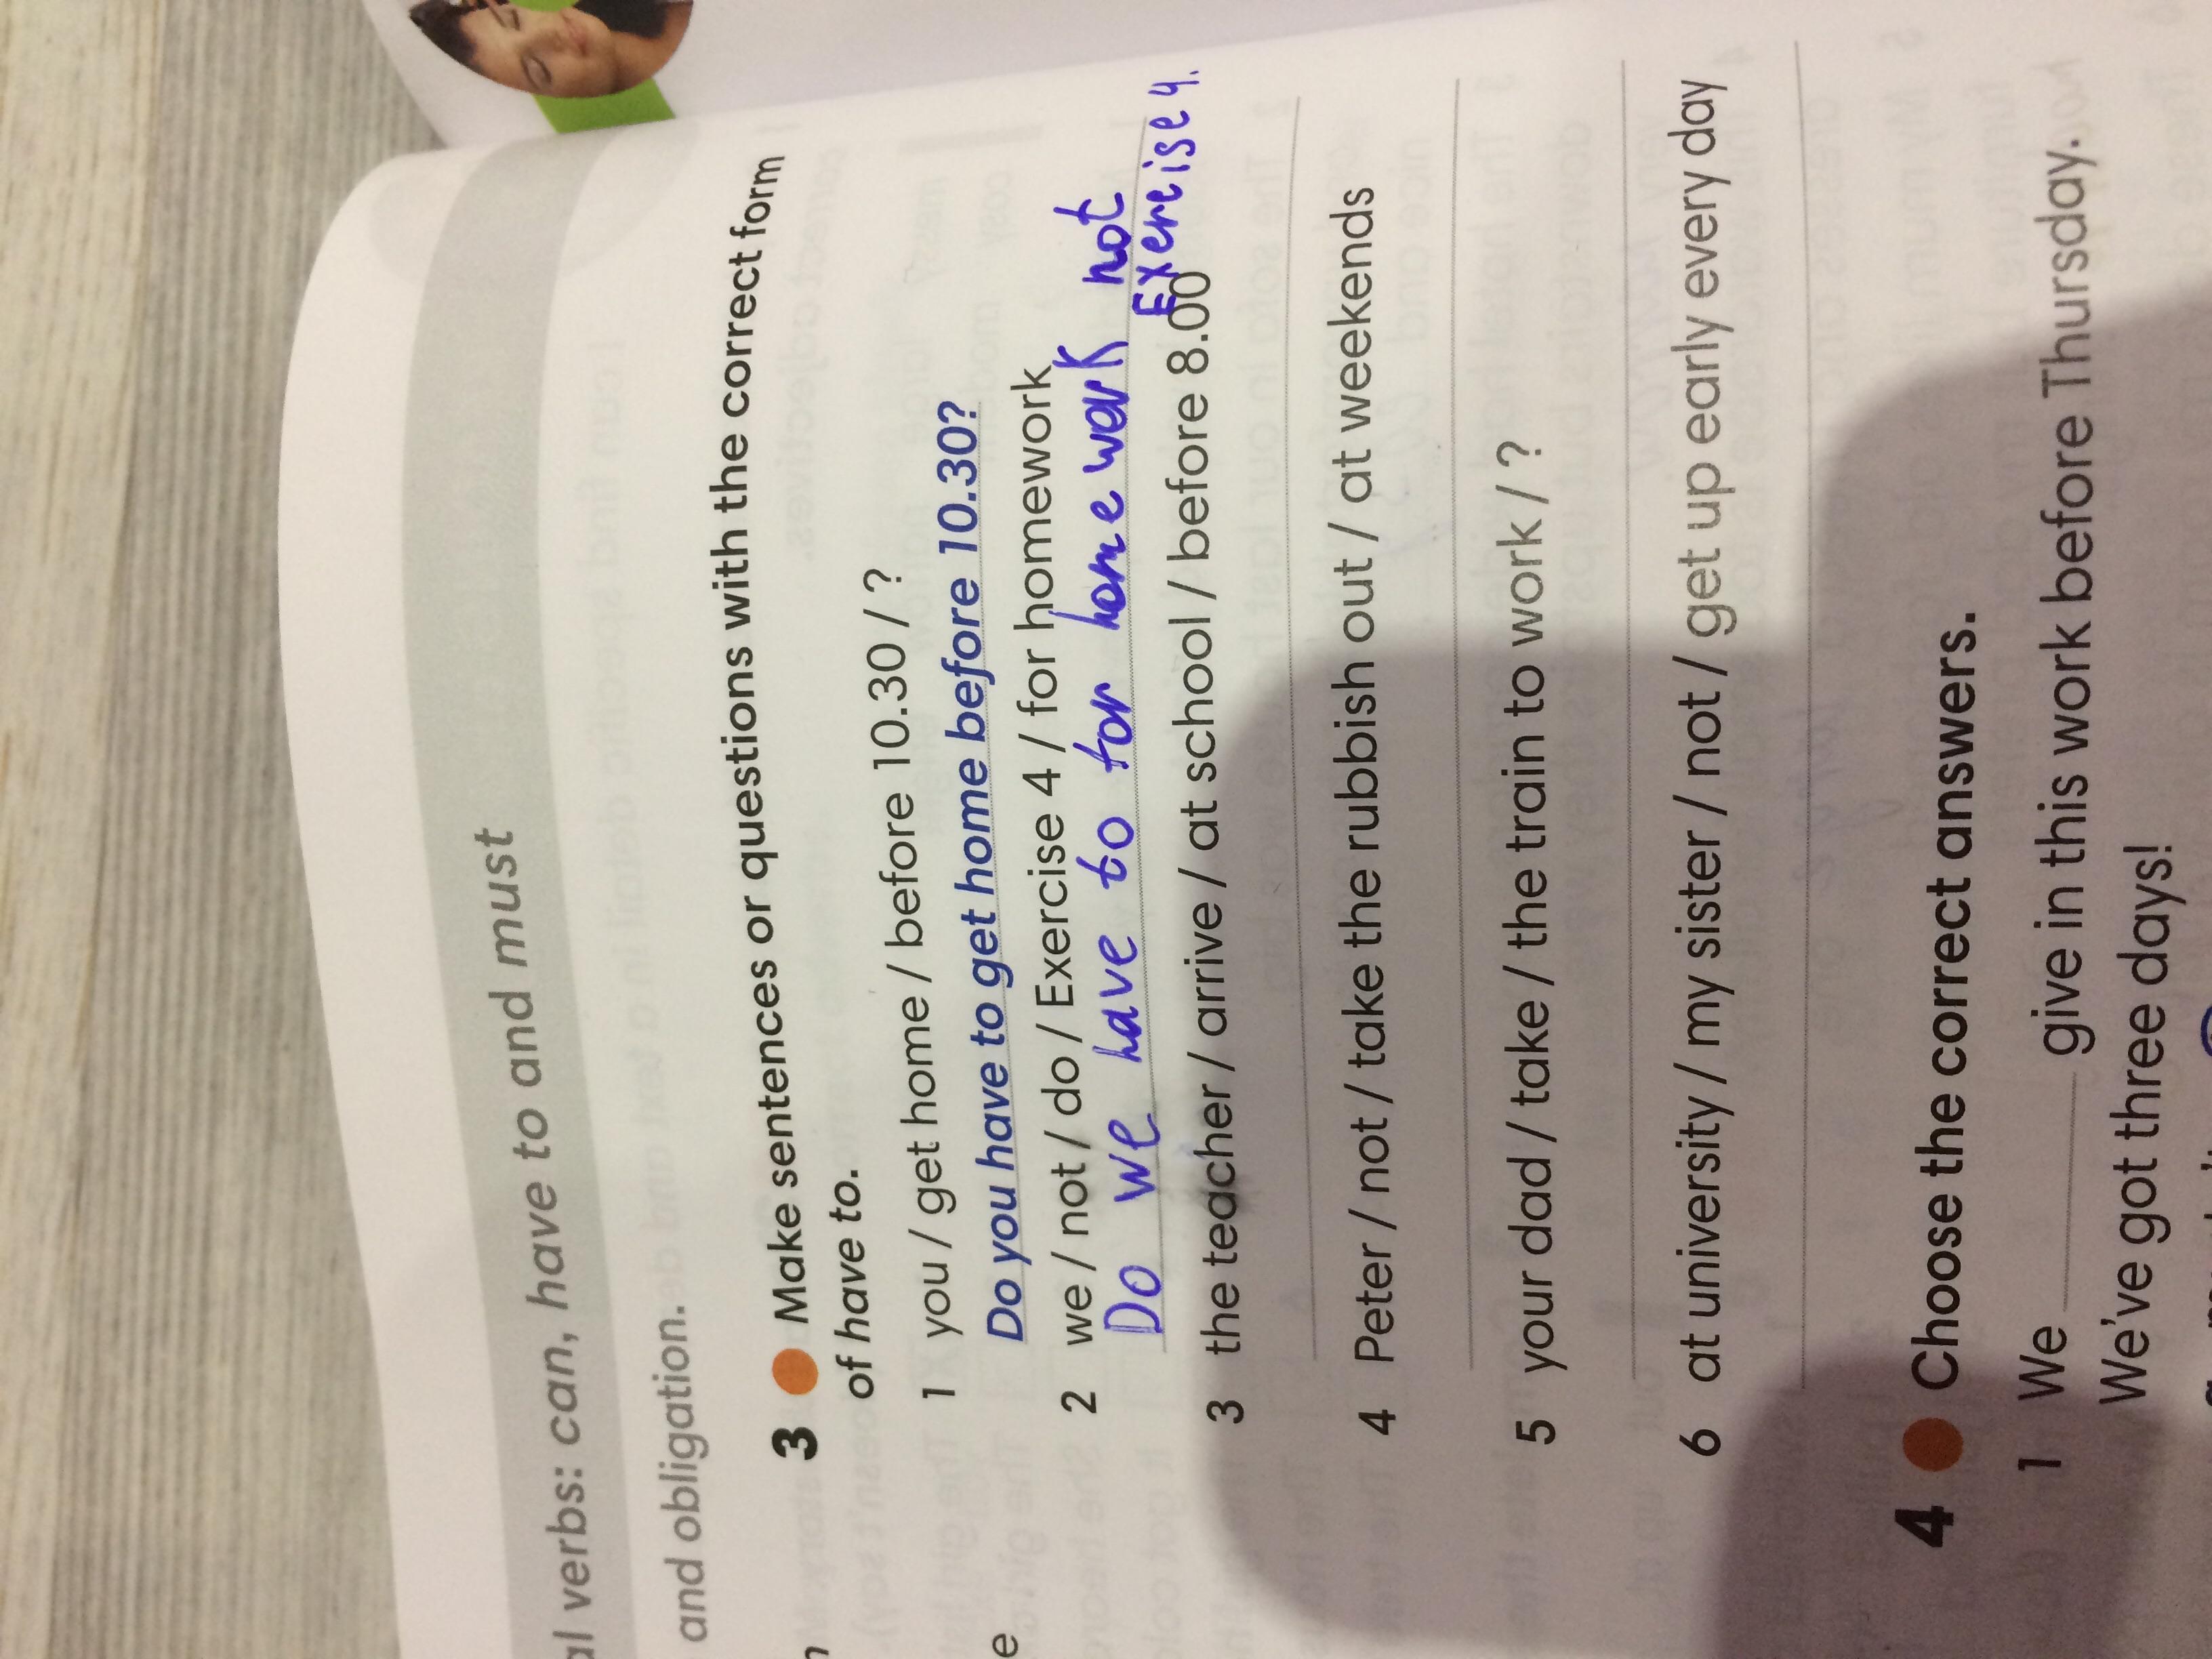 al verbs: can, have to and must
and obligation.
3 Make sentences or questions with the correct form
of have to.
1 you / get home / before 10.30 / ?
Do you have to get home before 10.30?
2 we / not / do / Exercise 4 / for homework
Do we have to for homework not
Exercise 4.
3 the teacher / arrive / at school / before 8.00
4 Peter / not / take the rubbish out / at weekends
5 your dad / take / the train to work / ?
6 at university / my sister / not / get up early every day
4 Choose the correct answers.
1 We ______ give in this work before Thursday.
We've got three days!